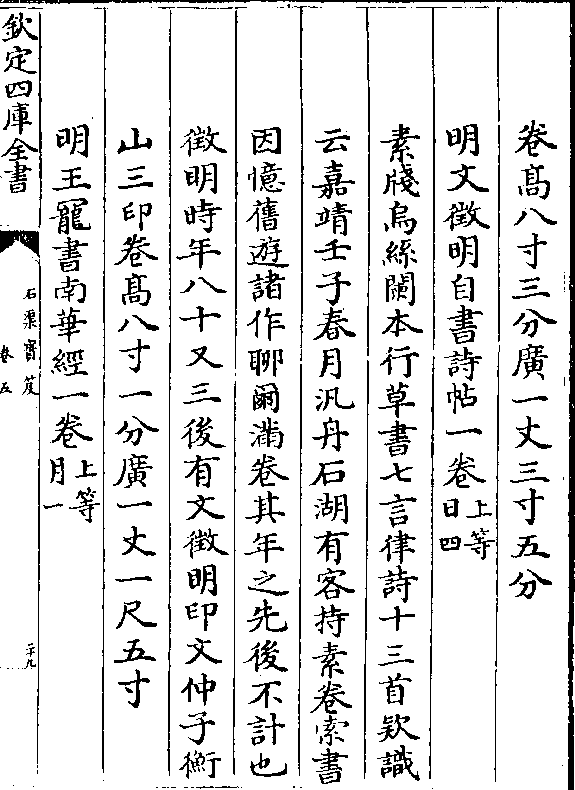 卷髙八寸三分廣一丈三寸五分
明文徵明自書詩帖一卷上等日四
素牋烏絲闌本行草書七言律詩十三首欵識
云嘉靖壬子春月汎舟石湖有客持素卷索書
因憶舊遊諸作聊爾滿卷其年之先後不計也
徵明時年八十又三後有文徵明印文仲子衡
山三印卷髙八寸一分廣一丈一尺五寸
明王寵書南華經一卷上等月一
欽定四庫全書
石渠寳笈
卷五
二十九